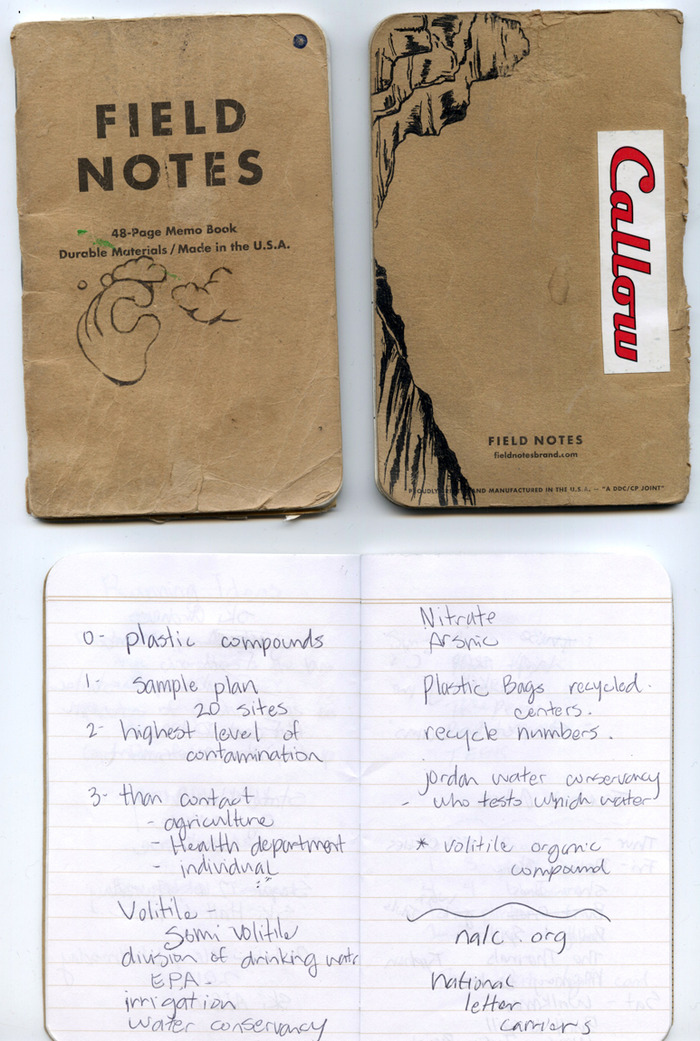 FIELD
NOTES
48-Page Memo Book
Durable Materials / Made in the U.S.A.
Callow
FIELD NOTES
fieldnotesbrand.com
PROUDLY AND MANUFACTURED IN THE U.S.A. — "A DDC/CP JOINT"
0- plastic compounds
1- Sample plan
20 sites
2- highest level of
contamination
3- than contact
- agriculture
- Health department
- individual
Volitile -
Somi volitile
division of drinking watr
EPA -
irrigation
water conservancy
Nitrate
Arsnic
Plastic Bags recycled.
centers.
recycle numbers.
jordan water conservancy
- who tests which water
* volitile organic
compound
nalc.org
national
letter
carriers